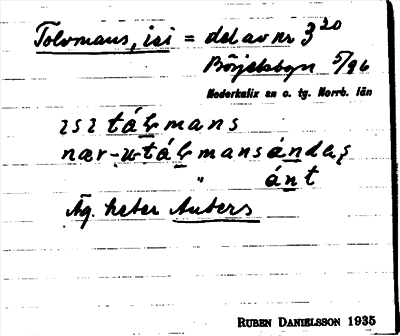 Tolvmans, isi = del av nr 3²⁰
Börjelsbyn 5/96
Nederkalix sn o. tg. Norrb. län
ısı tálmans
nær-u-tálmansándas
" ánt
Äg. heter Anters
RUBEN DANIELSSON 1935